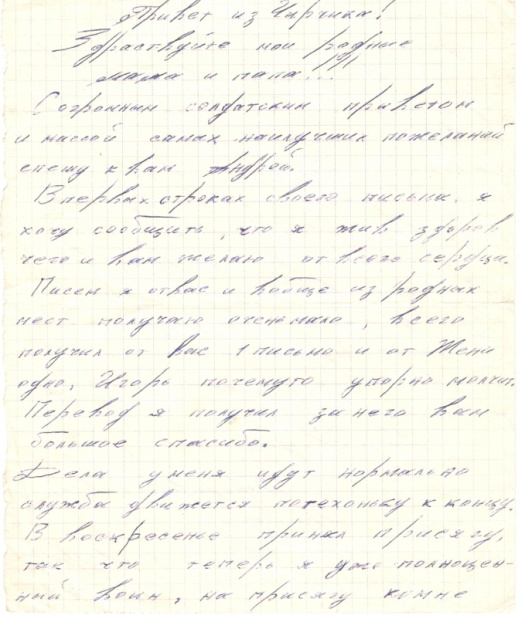 Привет из Чирчика!
Здраствуйте мои родние
мама и папа!!!
С огромным солдатским приветом
и массой самых наилучших пожеланий
спешу к вам Андрей.
В первых строках своего письма, я
хочу сообщить, что я жив здоров
чего и вам желаю от всего сердца.
Писем я от вас и вобще из родных
мест получаю очень мало, всего
получил от вас 1 письмо и от Жени
одно, Игорь почемуто упорно молчит.
Перевод я получил за него вам
большое спасибо.
Дела у меня идут нормально
служба движется потехоньку к концу.
В воскресенье принял присягу,
так что теперь я уже полноцен-
ный воин, на присягу комне